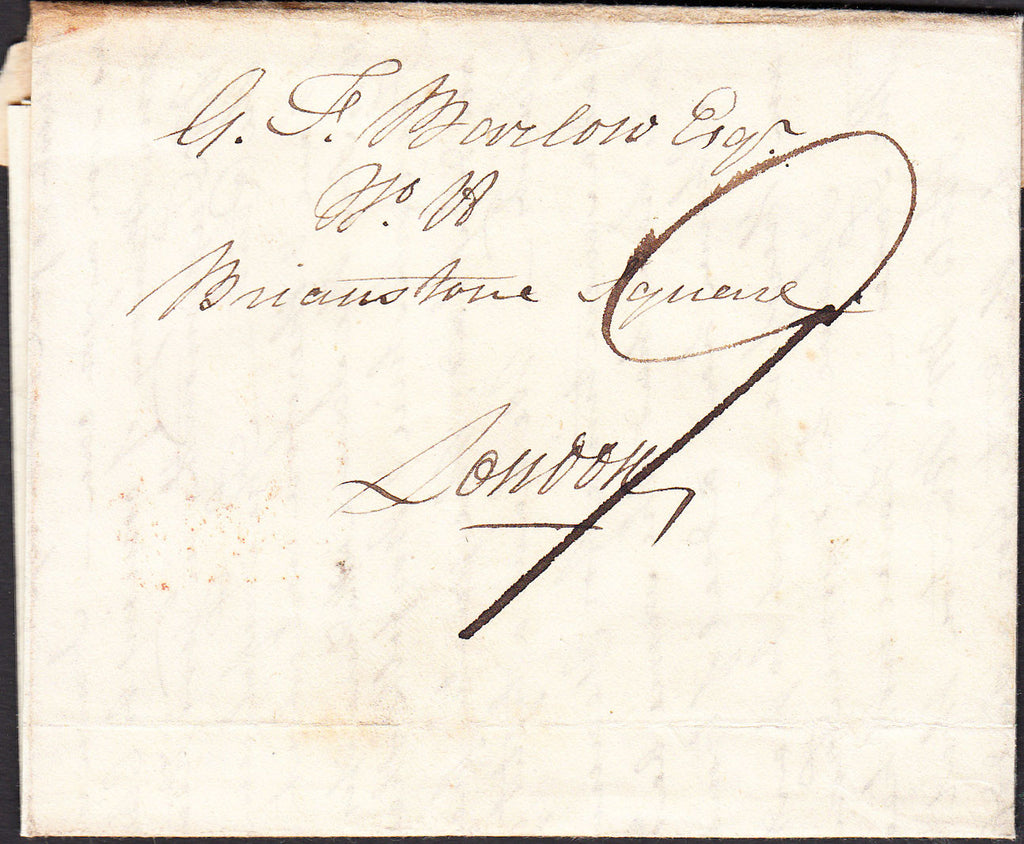 G. F. Barlow Esqr.
No.
Brianstone Square
London
9